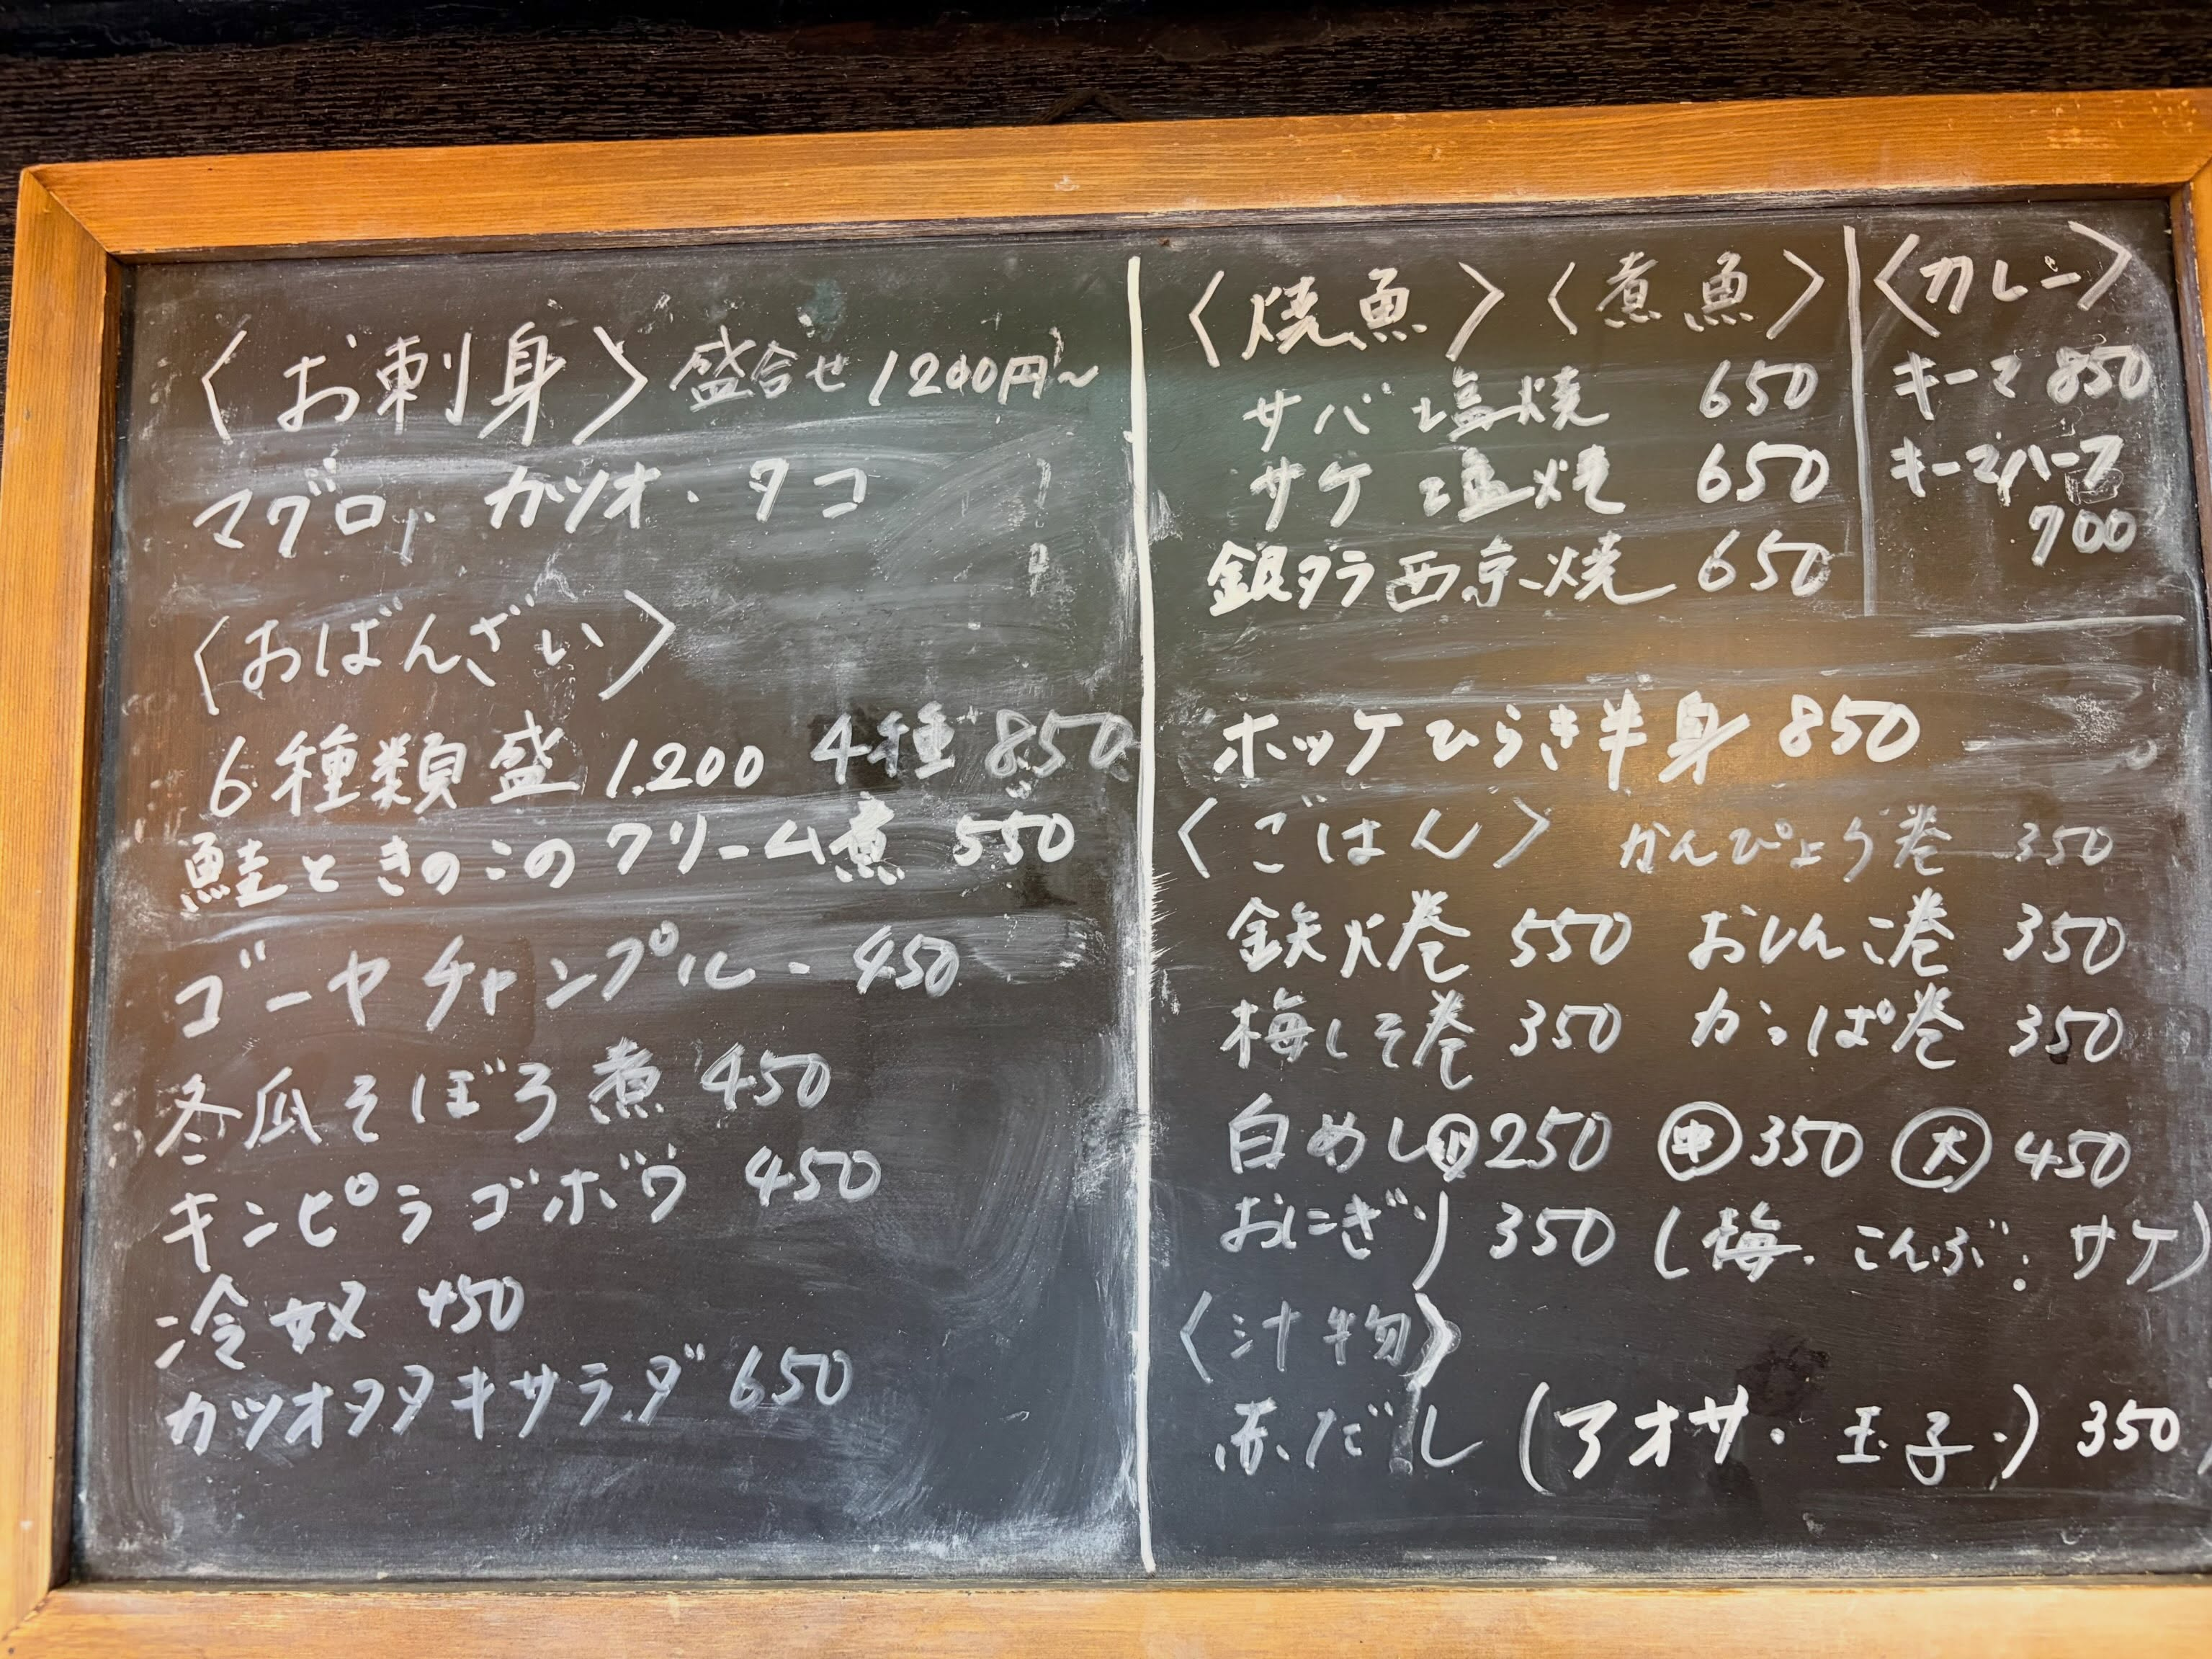 〈お刺身〉盛合せ 1200円〜
マグロ、カツオ・タコ
〈おばんざい〉
6種類盛 1.200 4種 850
鮭ときのこのクリーム煮 550
ゴーヤチャンプルー 450
冬瓜そぼろ煮 450
キンピラゴボウ 450
冷奴 450
カツオタタキサラダ 650
〈焼魚〉〈煮魚〉
サバ塩焼 650
サケ塩焼 650
銀タラ西京焼 650
ホッケひらき半身 850
〈カレー〉
キーマ 850
キーマハーフ
700
〈ごはん〉 かんぴょう巻 350
鉄火巻 550 おしんこ巻 350
梅しそ巻 350 かっぱ巻 350
白めし㊙250 ㊥350 ㊤450
おにぎり 350 (梅・こんぶ・サケ)
〈汁物〉
赤だし (アオサ・玉子・) 350